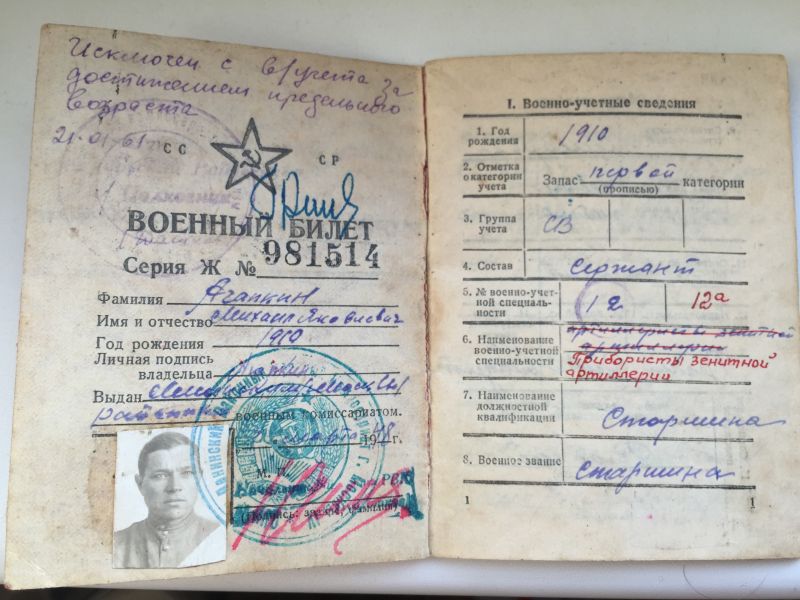 Исключен с в/учета за
достижением предельного
возраста
21.01.61
СС СР
ВОЕННЫЙ БИЛЕТ
Серия Ж № 981514
Фамилия Агапкин
Имя и отчество Михаил Яковлевич
Год рождения 1910
Личная подпись
владельца
Выдан
районным военным комиссариатом.
марта 1948г.
М. П.
(Подпись, звание, фамилия)
I. Военно-учетные сведения
1. Год
рождения
1910
2. Отметка
о категории
учета
Запас первой категории
(прописью)
3. Группа
учета
СВ
4. Состав
Сержант
5. № военно-учет-
ной специаль-
ности
12
12а
6. Наименование
военно-учетной
специальности
артиллерия зенитной
артиллерии
Прибористы зенитной
артиллерии
7. Наименование
должностной
квалификации
Старшина
8. Военное звание
старшина
1
1